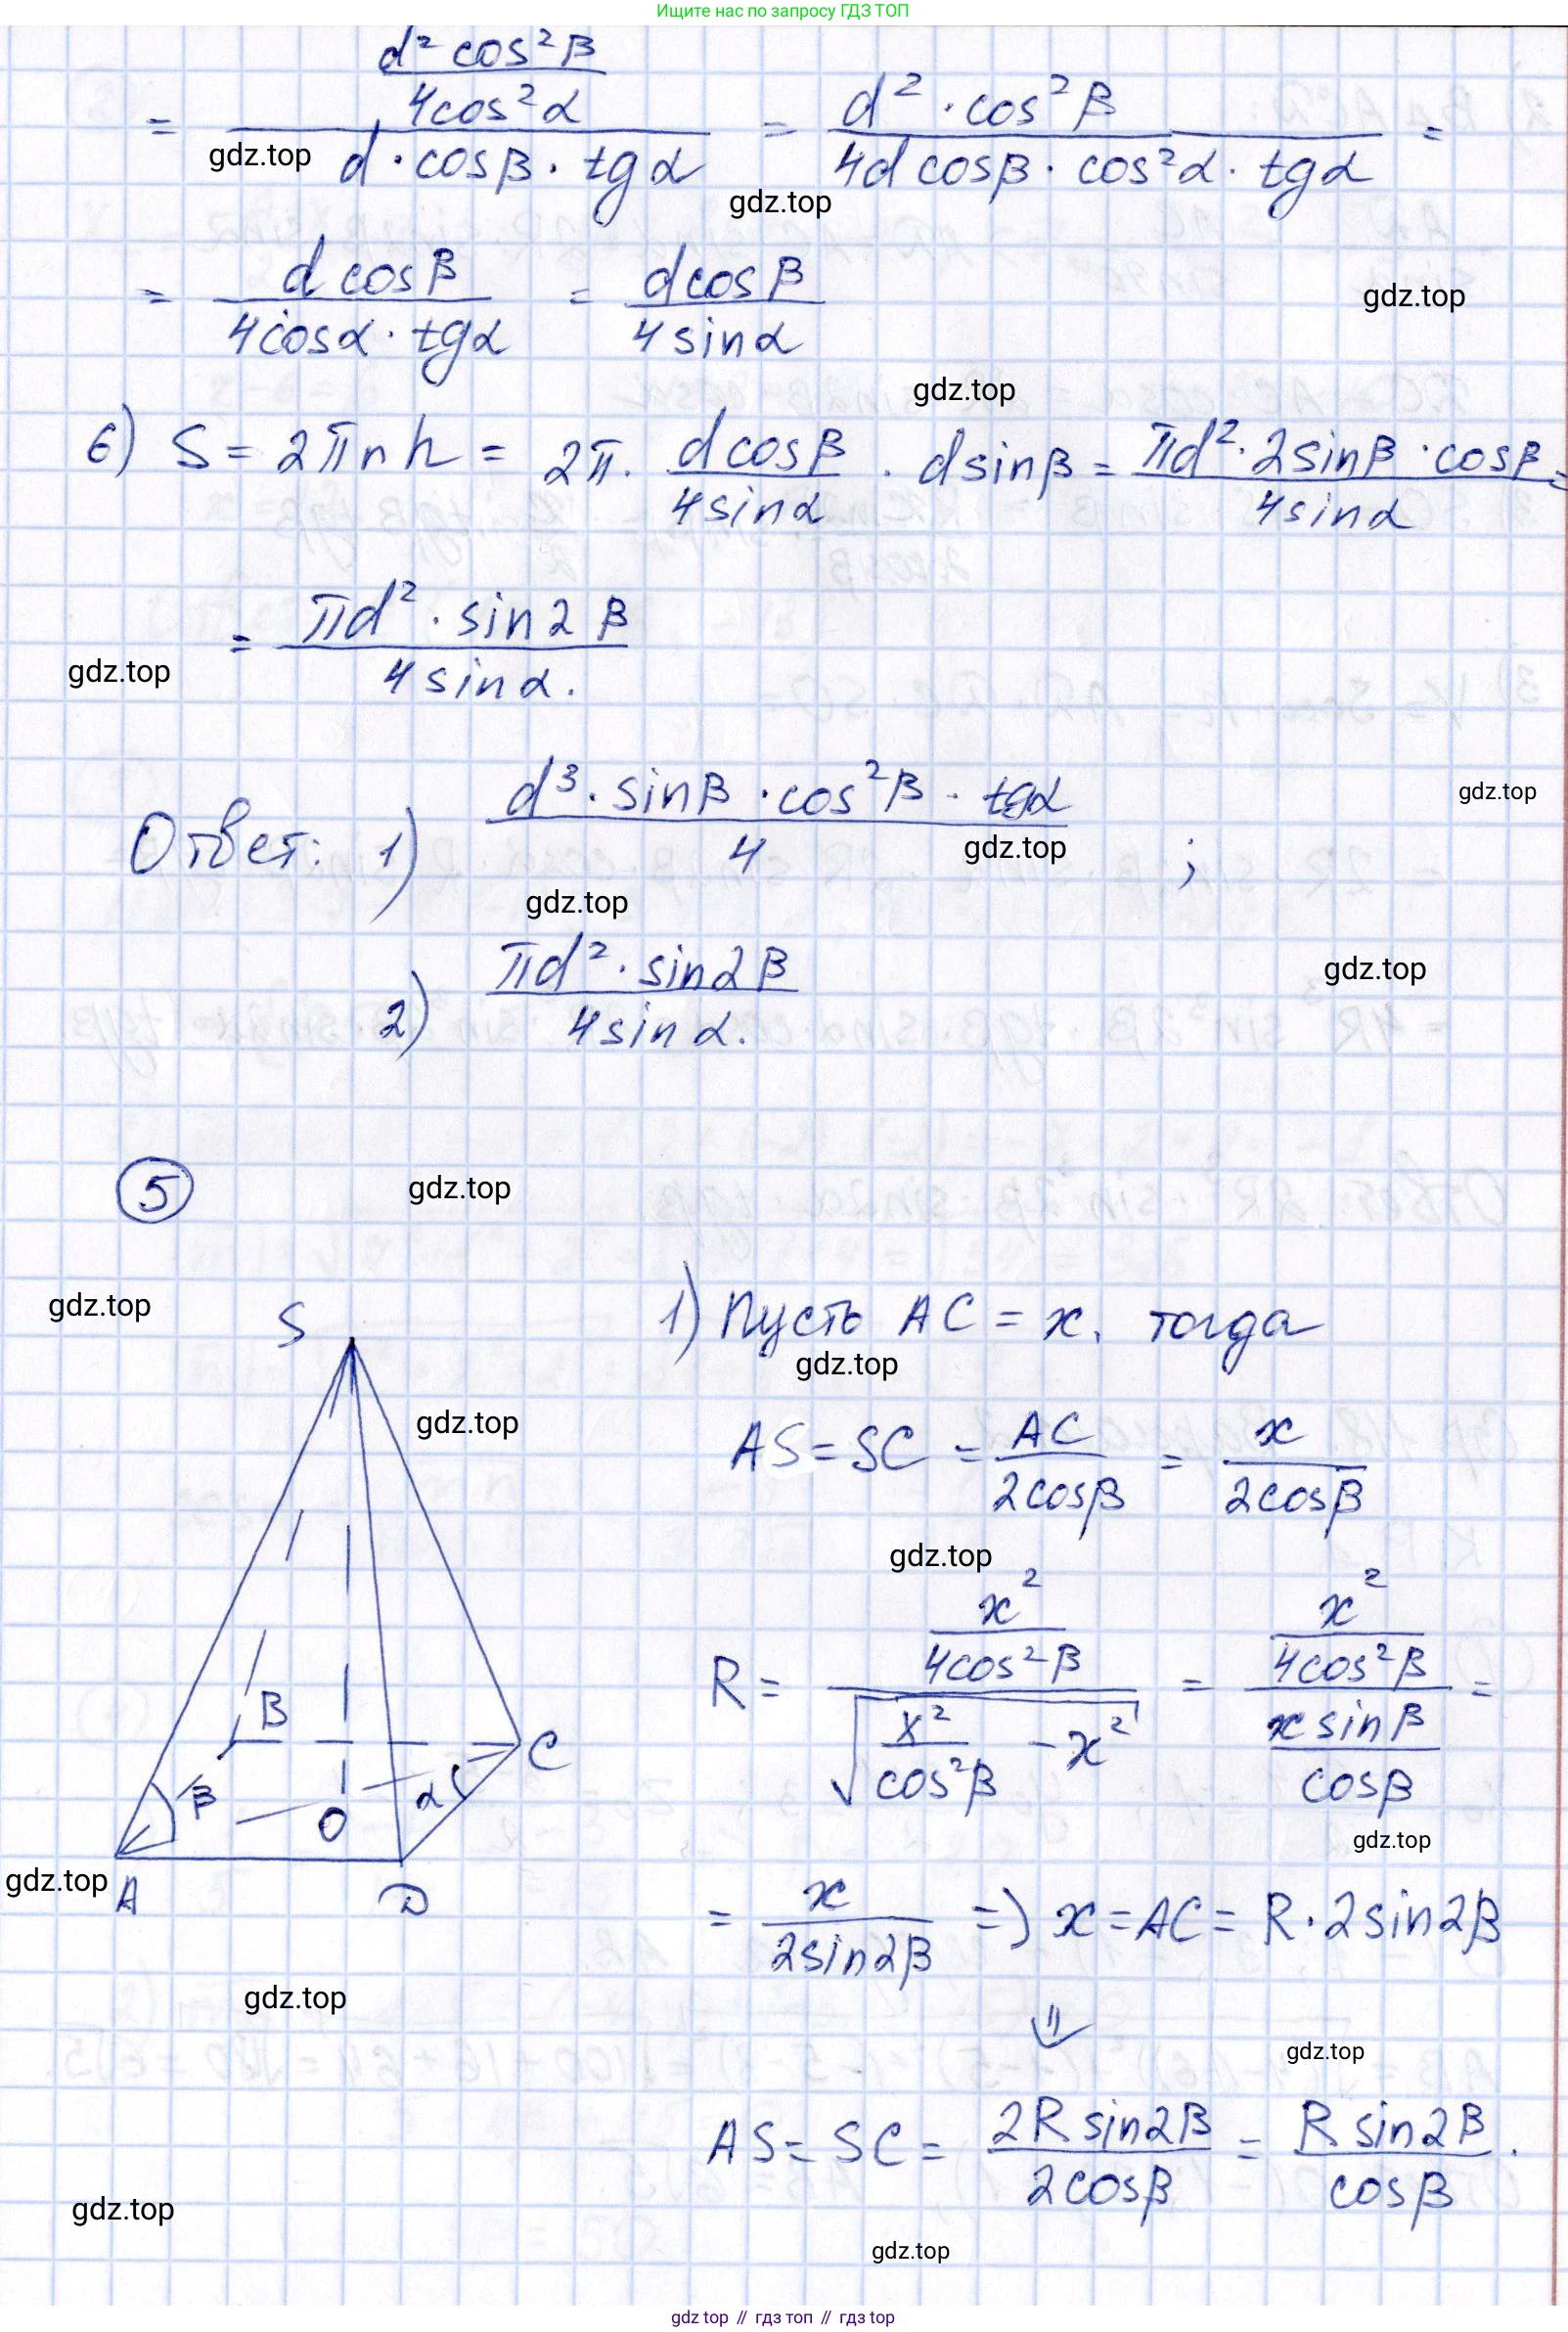 Ищите нас по запросу ГДЗ ТОП
= (d² cos²β / 4cos²α) / (d · cosβ · tgα) = d² · cos²β / (4d cosβ · cos²α · tgα) =
gdz.top
gdz.top
= d cosβ / (4cosα · tgα) = dcosβ / 4sinα
gdz.top
gdz.top
6) S = 2πrh = 2π · dcosβ / 4sinα · dsinβ = πd² · 2sinβ · cosβ / 4sinα =
= πd² · sin2β / 4sinα.
gdz.top
gdz.top
Ответ: 1) d³ · sinβ · cos²β · tgα / 4 ;
gdz.top
gdz.top
gdz.top
2) πd² · sin2β / 4sinα.
5
gdz.top
gdz.top
S
1) Пусть AC = x, тогда
gdz.top
gdz.top
AS = SC = AC / 2cosβ = x / 2cosβ
gdz.top
R = (x² / 4cos²β) / √(x² / cos²β - x²) = (x² / 4cos²β) / (x sinβ / cosβ) =
B
C
β
O
α
gdz.top
gdz.top
A
D
= x / 2sin2β => x = AC = R · 2sin2β
gdz.top
⇓
gdz.top
AS = SC = 2R sin2β / 2cosβ = R sin2β / cosβ.
gdz.top
gdz.top
gdz top // гдз топ // гдз top